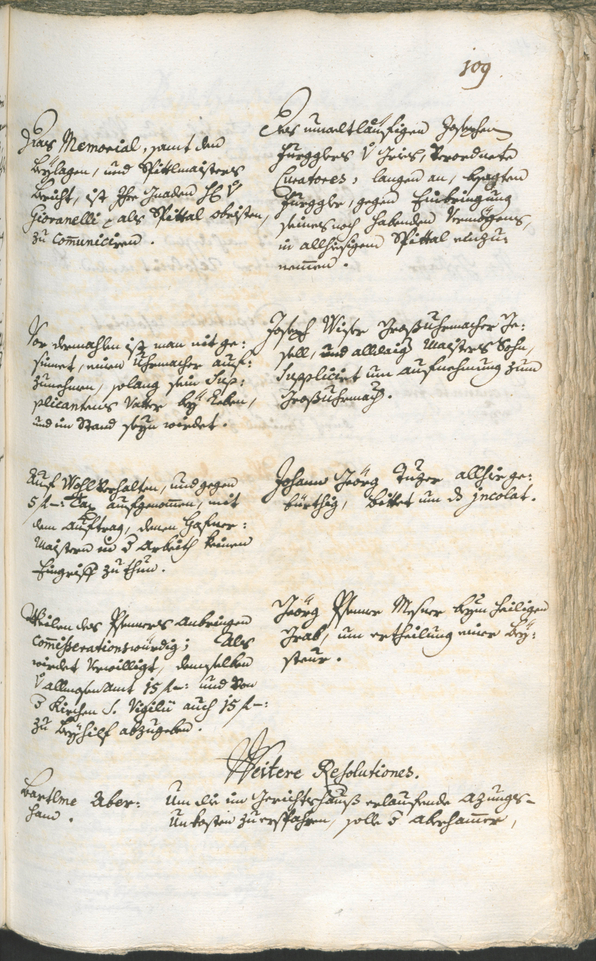 109
Dises Memorial, samt den
Beylagen, und Spittlmaisters
Bericht, ist Ihr Gnaden H: v
Gioranelli als Spittal obristen,
zu communiciren.
Des unweltläufigen Josephen
Gurggbers v Gries, Verordnete
Curatores, langen an, besagten
Gurggbr, gegen Einbringung
seines noch habenden Vermögens,
in allhiesigem Spittal einzu:
nemmen.
Vor dermahlen ist man nit ge:
sinnet, einen Uhrmacher auf:
zunehmen, solang sein Sup:
plicantens Vatter bey Leben,
und im Stand seyn wirdet.
Joseph Wiser Großuhrmacher Ge:
sell, und alldaig Maisters Sohn,
Supplicirt um aufnehmung zum
Großuhrmach.
Auf Wohlverhalten, und gegen
5 f-: Tax aufgenommen, mit
dem Auftrag, denen Hafner:
Maistern in d Arbeith keinen
Eingriff zu thun.
Johann Georg Tuzer allhir ge:
bürthig, bittet um ds Jncolat.
Weilen des Pfenners Anbringen
commiserationswürdig; Als
wirdet verwilliget, demselben
v allmosen Amt 15 f-: und von
d Kirchen S. Vigilii auch 15 f-:
zu Beyhilf abzugeben.
Georg Pfenner Mesner beym heiligen
Grab, um ertheilung einer bey:
steur.
Weitere Resolutiones.
Bartlme Aber:
ham.
Um die im Gerichtshauß erlaufende Azungs-
Unkosten zu ersparen, solle d Aberhamer,